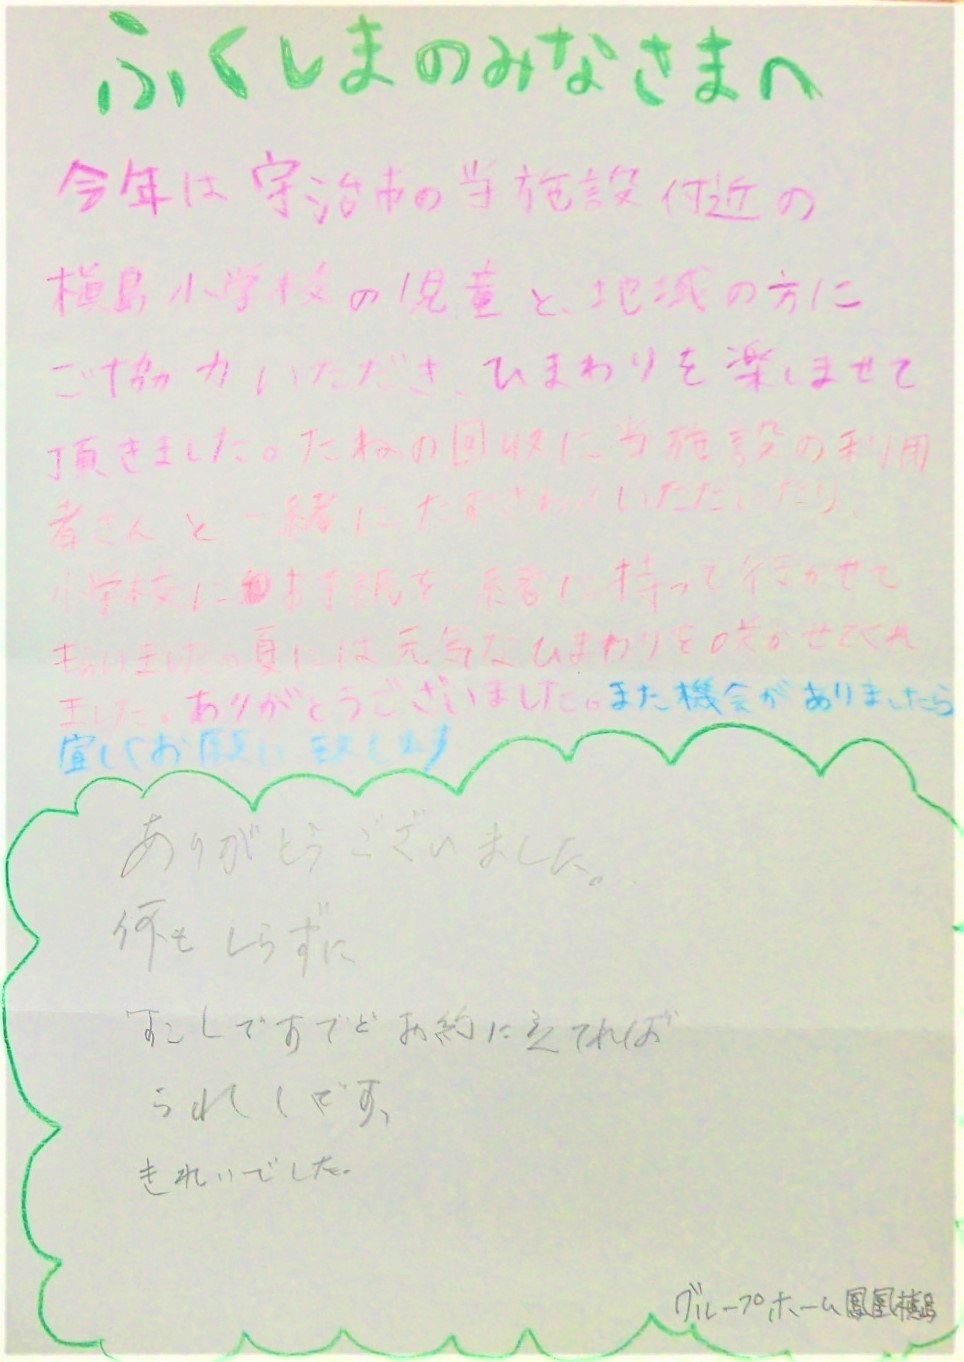 ふくしまのみなさまへ
今年は宇治市の当施設付近の
槇島小学校の児童と、地域の方に
ご協力いただき、ひまわりを楽しませて
頂きました。たねの回収に当施設の利用
者さんと一緒に いただいたり
小学校に お手紙を 持って行かせて
もらいました。夏には元気なひまわりを咲かせてくれ
ました。ありがとうございました。また機会がありましたら
宜しくお願い致します
ありがとうございました。
何もしらずに
すこしですでど お約に立てれば
うれしいです。
きれいでした。
グループホーム鳳凰槇島